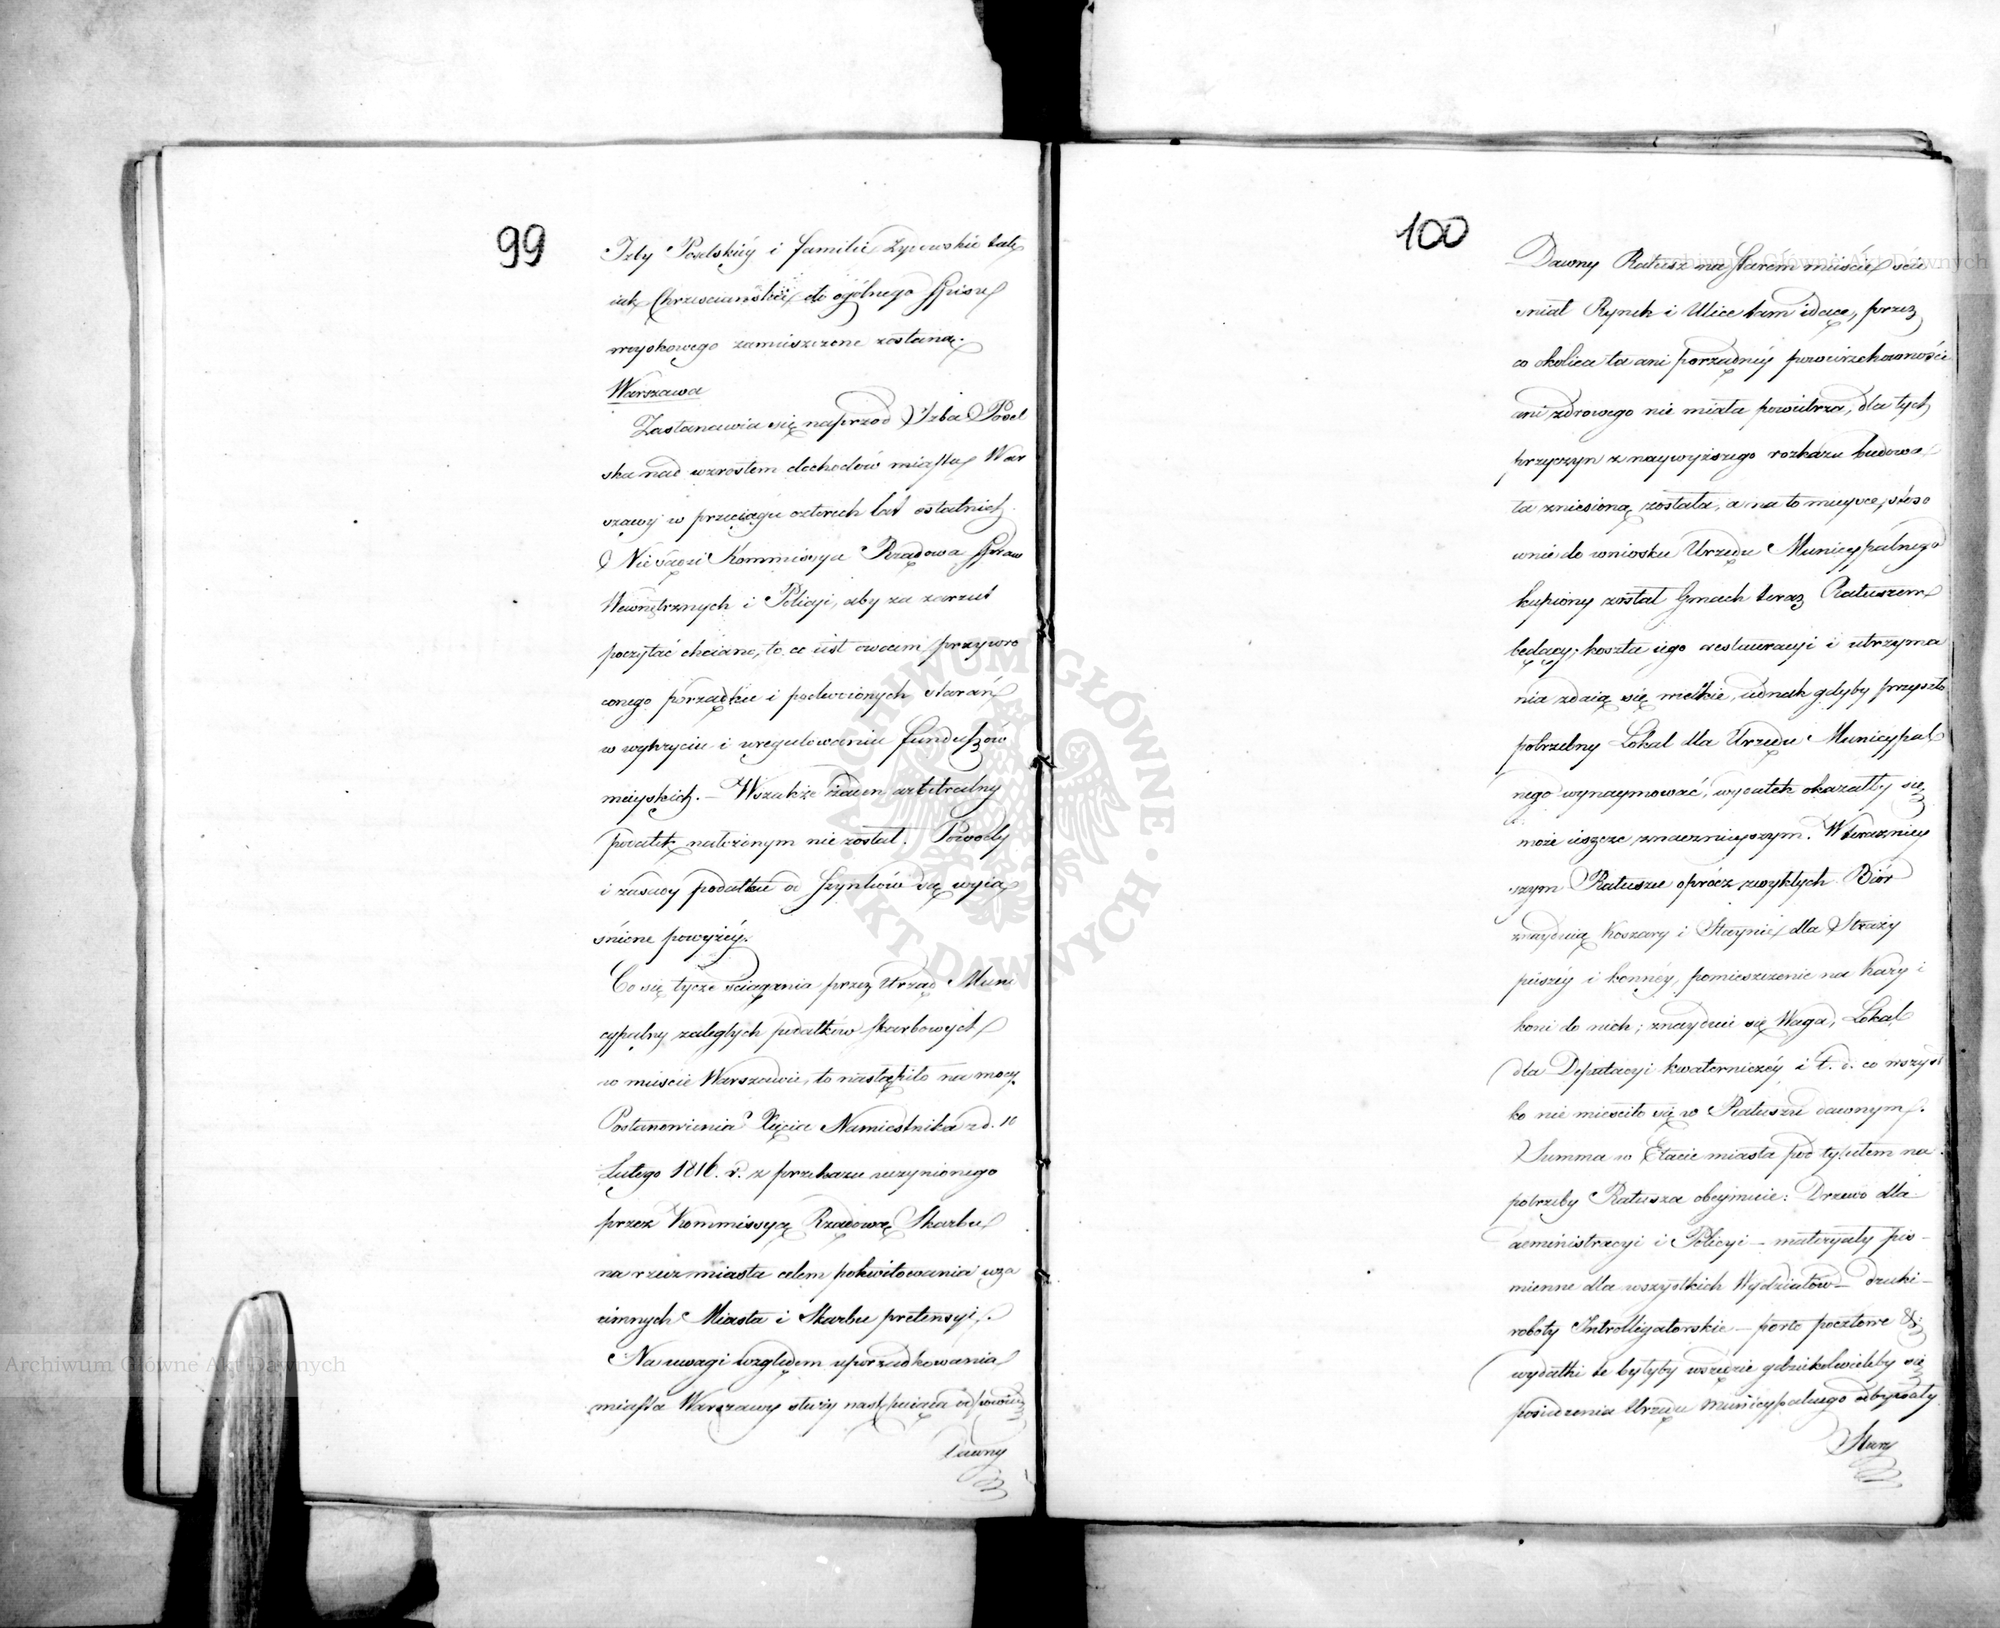 99
Izby Poselskiéy i familie Żydowskie tak
iak Chrześciańskie do ogólnego Spisu
woyskowego zamieszczone zostaną.
Warszawa
Zastanawia się naprzód Izba Posel
ska nad wzrostem dochodów miasta War
szawy w przeciągu czterech lat ostatnich.
Nie sądzi Kommissya Rządowa Spraw
Wewnętrznych i Policyi, aby za zarzut
poczytać chciano, to co iest owocem przywro
conego porządku i podwoionych starań
w wykryciu i uregulowaniu funduszów
mieyskich. – Wszakże żaden arbitralny
podatek nałożonym nie został. Powody
i zasady podatku od szynków są wyia
śnione powyżéy.
Co się tycze ściągania przez Urząd Muni
cypalny zaległych podatków skarbowych
w mieście Warszawie, to nastąpiło na mocy
Postanowienia Xięcia Namiestnika z d. 10
Lutego 1816. r. z przekazu uczynionego
przez Kommissyą Rządową Skarbu
na rzecz miasta celem pokwitowania wza
iemnych Miasta i Skarbu pretensyi.
Na uwagi względem uporządkowania
miasta Warszawy służy następuiąca odpowiedź
Dawny
100
Dawny Ratusz na Starém mieście ście
śniał Rynek i Ulice tam idące, przez
co okolica ta ani porządnéy powierzchowności
ani zdrowego nie miała powietrza, dla tych
przyczyn z naywyższego rozkazu budowa
ta zniesioną została, a na to mieysce, stoso
wnie do wniosku Urzędu Municypalnego
kupiony został Gmach teraz Ratuszem
będący; koszta iego restauracyi i utrzyma
nia zdaią się wielkie, iednak gdyby przyszło
potrzebny Lokal dla Urzędu Municypal
nego wynaymować, wydatek okazałby się
może ieszcze znacznieyszym. W teraźniey
szym Ratuszu oprócz zwykłych Biór
znayduią Koszary i Staynie dla Straży
pieszéy i konnéy, pomieszczenie na Kary i
koni do nich; znayduie się Waga, Lokal
dla Deputacyi kwaterniczéy i t. d. co wszyst
ko nie mieściło się w Ratuszu dawnym.
Summa w Etacie miasta pod tytułem na
potrzeby Ratusza obeymuie: Drzewo dla
administracyi i Policyi – materyały piś–
mienne dla wszystkich Wydziałów – druki –
roboty Introlligatorskie – porto pocztowe &:
wydatki te byłyby wszędzie gdziekolwiekby się
posiedzenia Urzędu Municypalnego odbywały
Stary
Archiwum Główne Akt Dawnych
Archiwum Główne Akt Dawnych
ARCHIWUM GŁÓWNE · AKT DAWNYCH ·